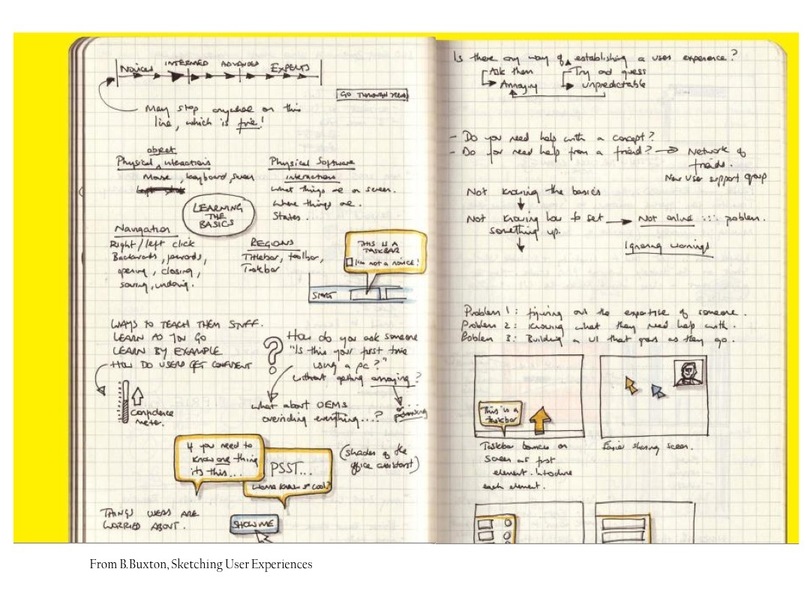 NOVICES INTERMED ADVANCED EXPERTS
GO THROUGH
May stop anywhere on this
line, which is fine!
object
Physical interactions
Mouse, keyboard, screen
Physical Software
interactions
What things are on screen.
Where things are.
States.
LEARNING
THE
BASICS
Navigation
Right / left click
Backwards, forwards,
opening, closing,
saving, undoing.
REGIONS
Titlebar, toolbar,
Taskbar
THIS IS A
TASKBAR
I'm not a novice!
START
WAYS TO TEACH THEM STUFF.
LEARN AS YOU GO
LEARN BY EXAMPLE
HOW DO USERS GET CONFIDENT
Confidence
meter.
?
How do you ask someone
"Is this your first time
using a pc?"
without getting annoying?
What about OEMS
overriding everything...?
or...
If you need to
know one thing
it's this...
PSST...
Wanna know so cool?
(shades of the
office assistant)
THINGS USERS ARE
WORRIED ABOUT.
SHOW ME
Is there any way of establishing a users experience?
Ask them
Annoying
Try and guess
unpredictable
- Do you need help with a concept?
- Do you need help from a friend?
Network of
friends.
New user support group
Not knowing the basics
Not knowing how to set
something up.
Not online ::: problem.
Ignoring warnings
Problem 1: figuring out the expertise of someone.
Problem 2: Knowing what they need help with.
Problem 3: Building a UI that grows as they go.
This is a
taskbar
Taskbar bounces on
screen as first
element. Introduce
each element.
sharing screen.
From B.Buxton, Sketching User Experiences